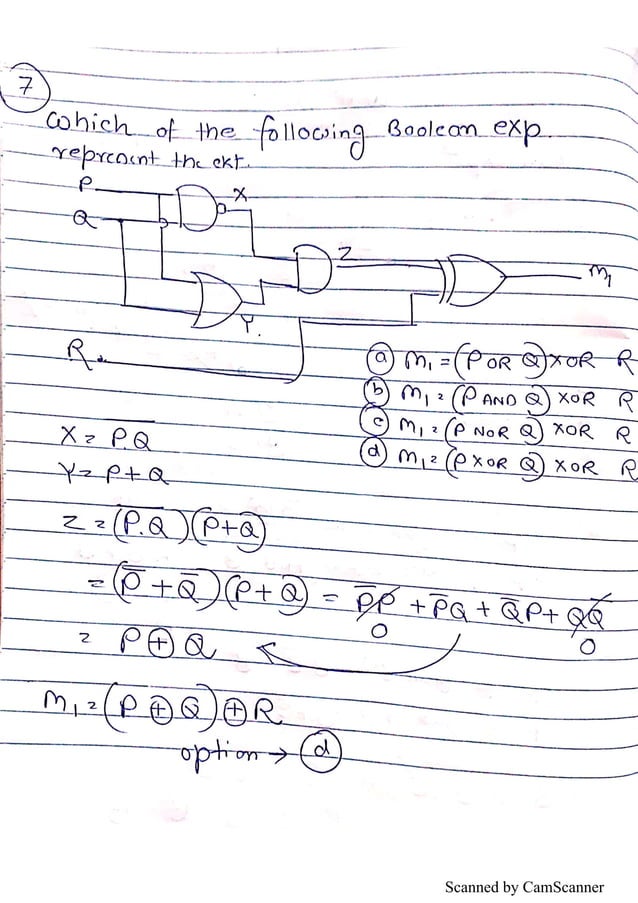 7
Which of the following Boolean exp.
represent the ckt.
P
X
Q
Z
M₁
Y.
R.
(a) M₁ = (P OR Q) XOR R
(b) M₁ = (P AND Q) XOR R
(c) M₁ = (P NOR Q) XOR R
(d) M₁ = (P XOR Q) XOR R
X = \overline{P.Q}
Y = P + Q
Z = (\overline{P.Q})(P+Q)
= (P̅ + Q̅)(P + Q) = P̅P + P̅Q + Q̅P + QQ̅
0 0
= P ⊕ Q
M₁ = (P ⊕ Q) ⊕ R
option → (d)
Scanned by CamScanner